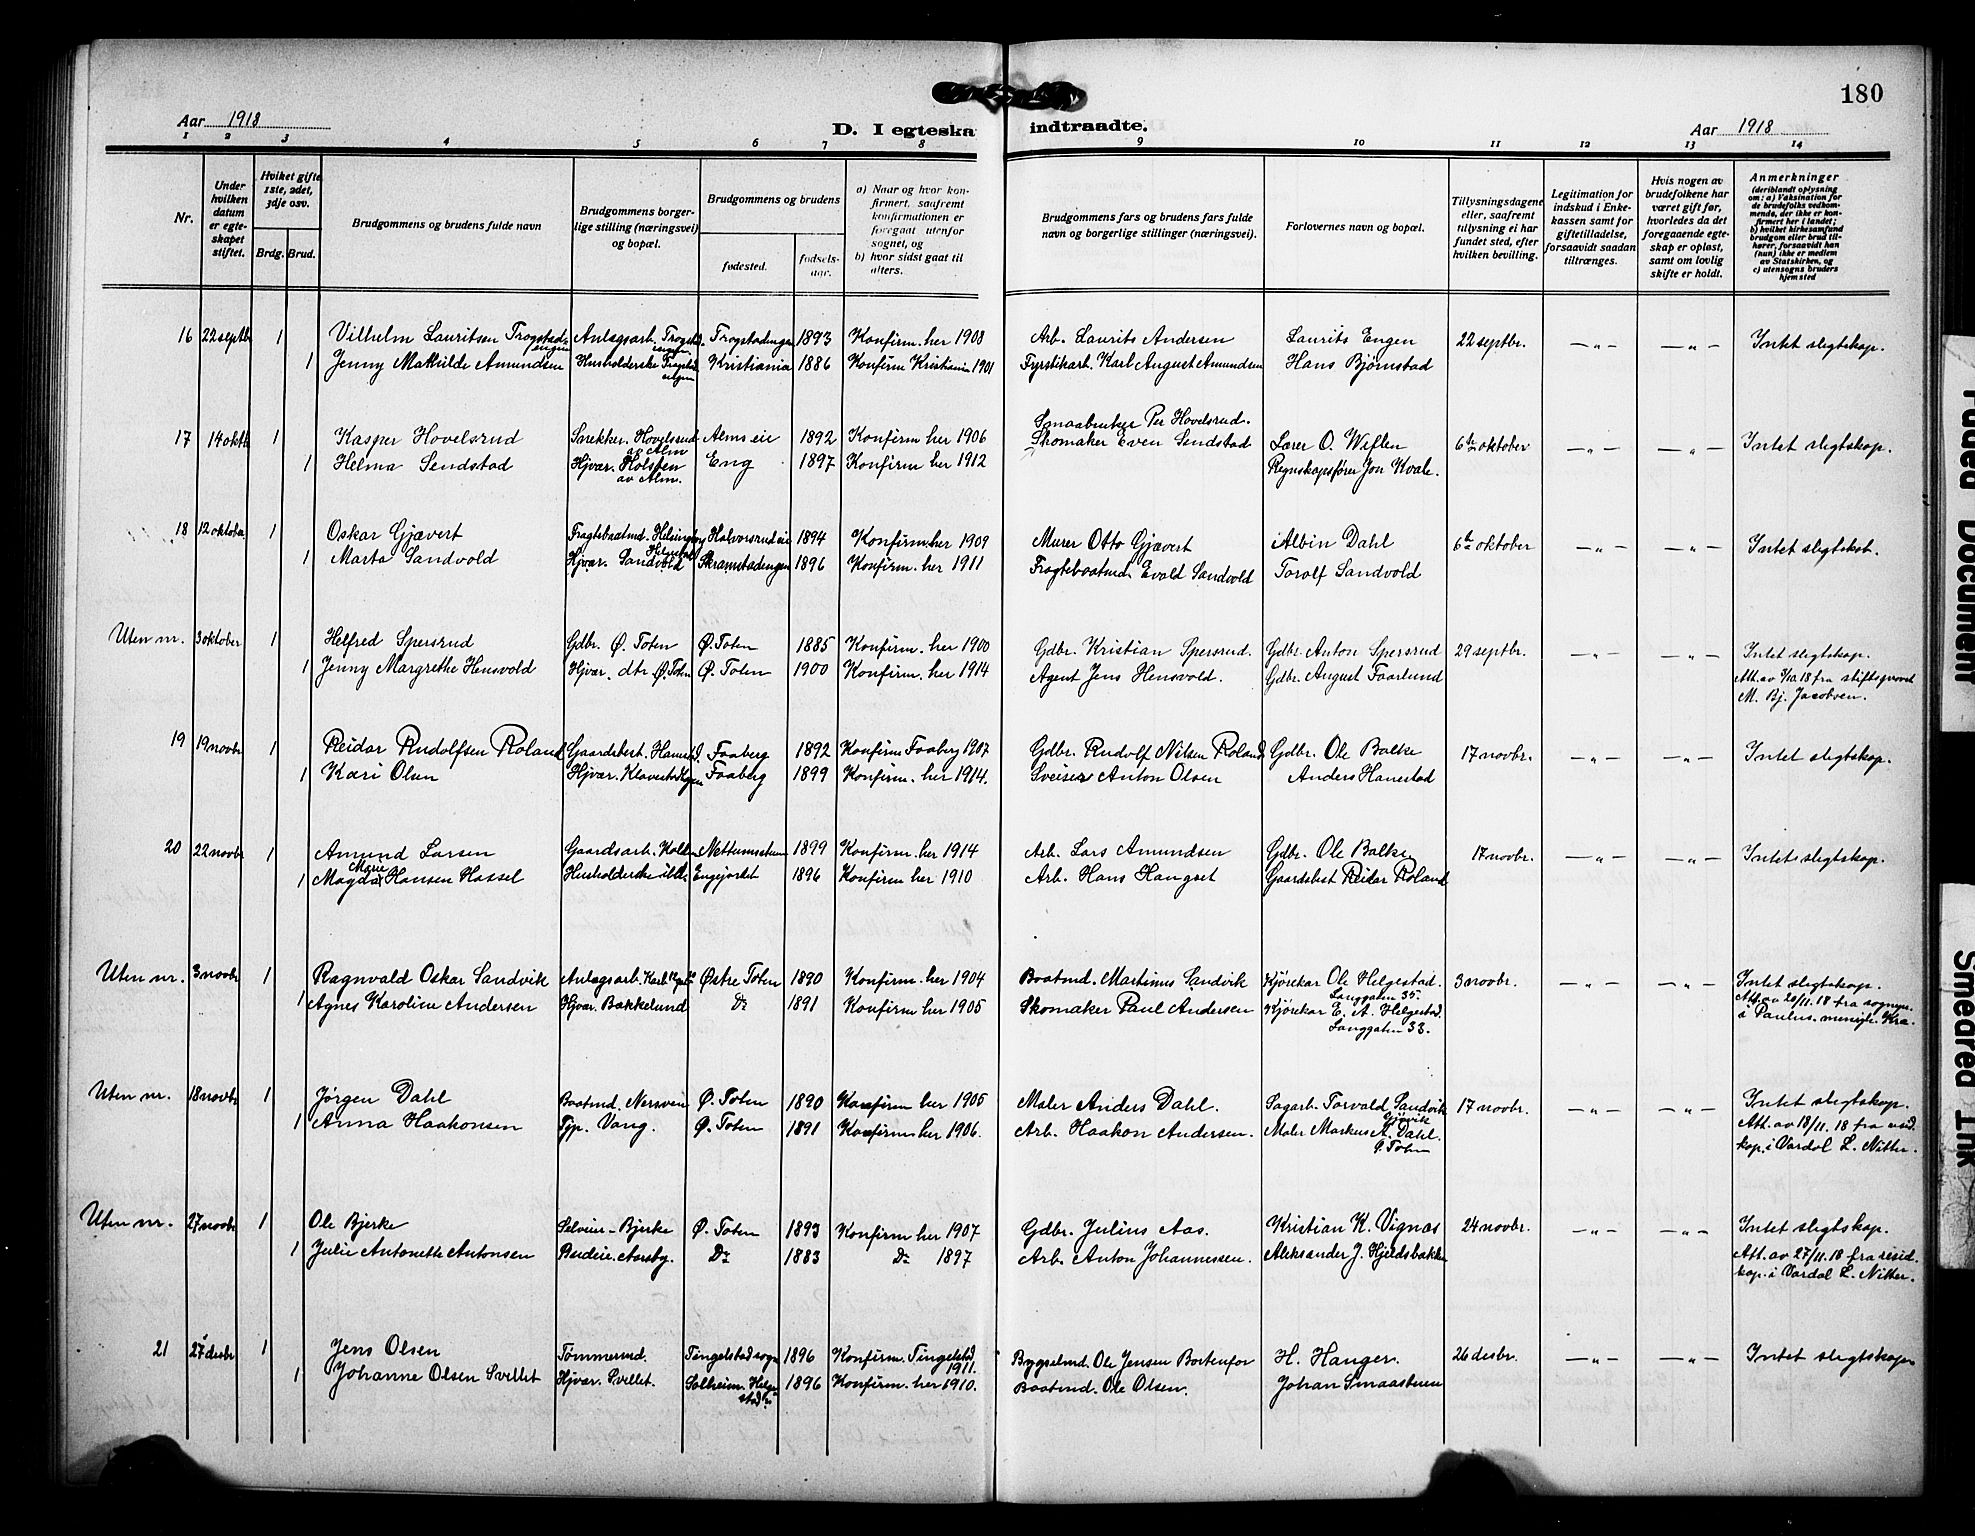 180
Aar 1918
D. I egteska
indtraadte.
Aar 1918
1 2 3 4 5 6 7 8 9 10 11 12 13 14
Nr.
Under hvilken datum er egteskapet stiftet.
Hviket gifte 1ste, 2det, 3dje osv.
Brdg. Brud.
Brudgommens og brudens fulde navn
Brudgommens borgerlige stilling (næringsvei) og bopæl.
Brudgommens og brudens
fødested.
fødselsaar.
a) Naar og hvor konfirmert, saafremt konfirmationen er foregaat utenfor sognet, og
b) hvor sidst gaat til alters.
Brudgommens fars og brudens fars fulde navn og borgerlige stillinger (næringsvei).
Forlovernes navn og bopæl.
Tillysningsdagene eller, saafremt tillysning ei har fundet sted, efter hvilken bevilling.
Legitimation for indskud i Enkekassen samt for giftetilladelse, forsaavidt saadan tiltrænges.
Hvis nogen av brudefolkene har været gift før, hvorledes da det foregaaende egteskap er opløst, samt om lovlig skifte er holdt.
Anmerkninger
(deriblandt oplysning om: a) Vaksination for de brudefolks vedkommende, der ikke er konfirmert her i landet; b) hvilket kirkesamfund brudgom eller brud tilhører, forsaavidt han (hun) ikke er medlem av Statskirken, og c) utensogns bruders hjemsted
16 22 septbr 1 Vilhelm Lauritsen Trogstadengen Anlægsarb. Trogstadengen Trogstadengen 1893 Konfirm. her 1908 Arb. Laurits Andersen Laurits Engen 22 septbr. — „ — — „ — Intet slegtskap.
1 Jenny Mathilde Amundsen Husholderske Trogstadengen Kristiania 1886 Konfirm Kristiania 1901 Fyrstikarb. Karl August Amundsen Hans Bjørnstad
17 14 oktb 1 Kasper Hovelsrud Snekker. Hovelsrud av Alm Alms eie 1892 Konfirm her 1906 Smaabruker Per Hovelsrud. Lærer O. Weflen 6te oktober — „ — — „ — Intet slegtskap.
1 Helma Sendstad Hjvær. Holsten av Alm. Eng 1897 Konfirm her 1912 Skomaker Even Sendstad Regnskapsfører Jon Kvale.
18 12 oktober 1 Oskar Gjævert Fragtebaatmd. Halvorsrud eie 1894 Konfirm. her 1909 Murer Otto Gjævert Albin Dahl 6te oktober — „ — — „ — Intet slegtskat.
1 Marta Sandvold Hjvær. Sandvold Skramstadengen 1896 Konfirm. her 1911 Fragtebaatmd. Evald Sandvold Torolf Sandvold
Uten nr. 3 oktober 1 Helfred Spersrud Gdbr. Ø. Toten Ø. Toten 1885 Konfirm. her 1900 Gdbr. Kristian Spersrud. Gdbr. Anton Spersrud 29 septbr. — „ — — „ — Intet slegtskap.
1 Jenny Margrethe Hensvold Hjvær. dtr Ø. Toten Ø. Toten 1900 Konfirm. her 1914 Agent Jens Hensvold. Gdbr. August Faarlund Att. av /10. 18 fra stiftsprovst M. Bj. Jacobsen.
19 19 novbr 1 Reidar Rudolfsen Roland Gaardsbest. Hanestd. Faaberg 1892 Konfirm Faaberg 1907 Gdbr. Rudolf Nilsen Roland Gdbr. Ole Balke 17 novbr. — „ — — „ — Intet slegtskap.
1 Kari Olsen Hjvær. Faaberg 1899 Konfirm. her 1914. Sveiser Anton Olsen Anders Hanestad
20 22 novbr 1 Amund Larsen Gaardsarb. 1899 Konfirm. her 1914 Arb. Lars Amundsen Gdbr. Ole Balke 17 novbr. — „ — — „ — Intet slegtskap.
1 Magda Marie Hansen Hassel Husholderske ibd. Engejordet 1896 Konfirm. her 1910 Arb. Hans Hangset Gaardsbest Reidar Roland
Uten nr. 3 novbr 1 Ragnvald Oskar Sandvik Anlægsarb. Østre Toten 1890 Konfirm. her 1904 Baatmd. Martinus Sandvik Kjørekar Ole Helgestad. Langgaten 35. 3 novbr. — „ — — „ — Intet slegtskap.
1 Agnes Karoline Andersen Hjvær. Bakkelund Do 1891 Konfirm. her 1905 Skomaker Paul Andersen Kjørekar E. A. Helgestad. Langgaten 33. Att. av 20/11. 18 fra sognepr. i Paulus. menigh. Kra.
Uten nr. 18 novbr 1 Jørgen Dahl Baatmd. Nersveen Ø. Toten 1890 Konfirm her 1905 Maler Anders Dahl. Sagarb. Torvald Sandvik Gjøvik 17 novbr. — „ — — „ — Intet slegtskap.
1 Anna Haakonsen Tjp. Vang. Ø. Toten 1891 Konfirm her 1906. Arb. Haakon Andersen. Maler Markus A. Dahl. Ø. Toten Att. av 18/11. 18 fra resid. kap. i Vardal L. Nitter.
Uten nr. 27 novbr 1 Ole Bjerke Selveier - Bjerke Ø. Toten 1893 Konfirm her 1907 Gdbr. Julius Aas. Kristian K. Vignæs 24 novbr. — „ — — „ — Intet slegtskap.
1 Julie Antonette Antonsen Budeie. Aasby. Do 1883 Do 1897 Arb. Anton Johannessen. Aleksander J. Hjeldsbakken Att. av 27/11. 18 fra resid. kap. i Vardal L. Nitter.
21 27 desbr 1 Jens Olsen Tømmermd. Tingelstad sogn 1896 Konfirm. Tingelstad 1911. Bygselmd. Ole Jensen Bortenfor H. Hanger. 26 desbr. — „ — — „ — Intet slegtskap.
1 Johanne Olsen Svellet Hjvær. Svellet. Solheim Helgestads 1896 Konfirm. her 1910. Baatmd. Ole Olsen. Johan Smaastuen
Faded Document
Smeared Ink